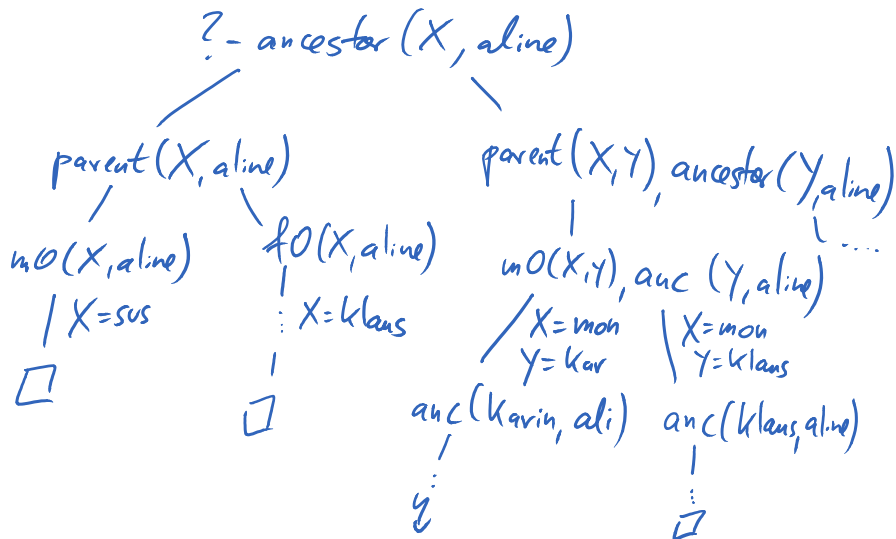 ?- ancestor(X, aline)
parent(X, aline)
parent(X,Y), ancestor(Y,aline)
mO(X, aline)
fO(X, aline)
....
mO(X,Y), anc (Y, aline)
X=sus
X=klaus
X=mon
Y=kar
X=mon
Y=klaus
anc(karin, ali)
anc(klaus, aline)